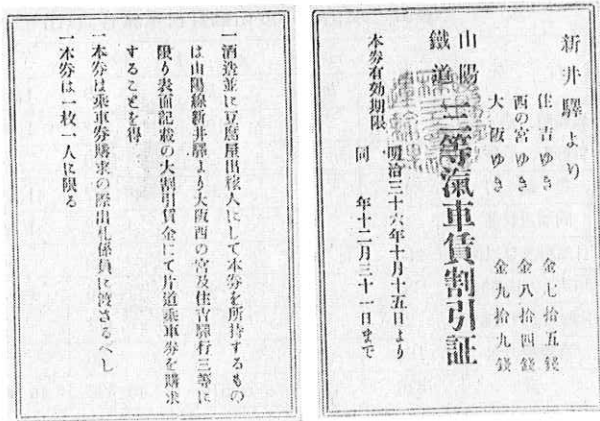 新井驛より
住吉ゆき 金七拾五錢
西の宮ゆき 金八拾四錢
大阪ゆき 金九拾九錢
山陽鐵道 三等汽車賃割引証
本券有効期限 明治三十六年十月十五日より
同 年十二月三十一日まで
一酒造並に豆腐屋出稼人にして本券を所持するもの
は山陽線新井驛より大阪西の宮及住吉驛行三等に
限り表面記載の大割引賃金にて片道乘車券を購求
することを得
一本券は乘車券購求の際出札係員に渡さるべし
一本券は一枚一人に限る